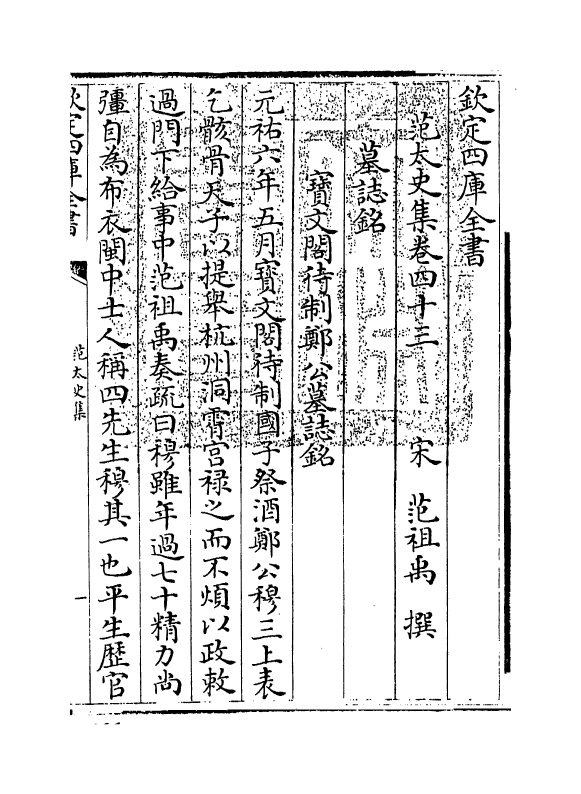 欽定四庫全書
范太史集卷四十三　宋　范祖禹　撰
墓誌銘
寶文閣待制鄭公墓誌銘
元祐六年五月寶文閣待制國子祭酒鄭公穆三上表
乞骸骨天子以提舉杭州洞霄宮禄之而不煩以政敕
過門下給事中范祖禹奏疏曰穆雖年過七十精力尚
彊自為布衣閩中士人稱四先生穆其一也平生歴官
欽定四庫全書
范太史集
一